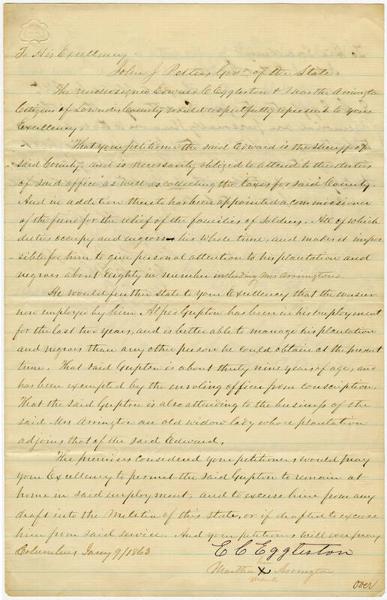 To His Excellency
John J Pettus Govr. of the State.
The undersigned Edward C Eggleston & Martha Arrington
Citizens of Lowndes County would respectfully represent to your
Excellency.
That your petitioner the said Edward is the Sheriff of
said County and is necessarily obliged to attend to the duties
of said office as well as collecting the taxes for said County
And in addition thereto has been appointed a commissioner
of the fund for the relief of the families of Soldiers. All of which
duties occupy and engross his whole time, and makes it impos
sible for him to give personal attention to his plantation and
negroes about eighty in number including Mrs Arringtons
He would further state to your Excellency that the overseer
now employed by him Gupton has been in his employment
for the last two years, and is better able to manage his plantation
and negroes than any other person he could obtain at the present
time. That said Gupton is about thirty nine years of age, and
has been exempted by the enroling officer from conscription.
That the said Gupton is also attending to the business of the
said Mrs Arrington an old widow lady whose plantation
adjoins that of the said Edward.
The premises considered your petitioners would pray
your Excellency to permit the said Gupton to remain at
home in said employment and to excuse him from any
draft into the Militia of this State, or if drafted to excuse
him from said service. And your petitioners will ever pray
Columbus Jany 9/1863
E C Eggleston
Martha X Arrington
mark
over